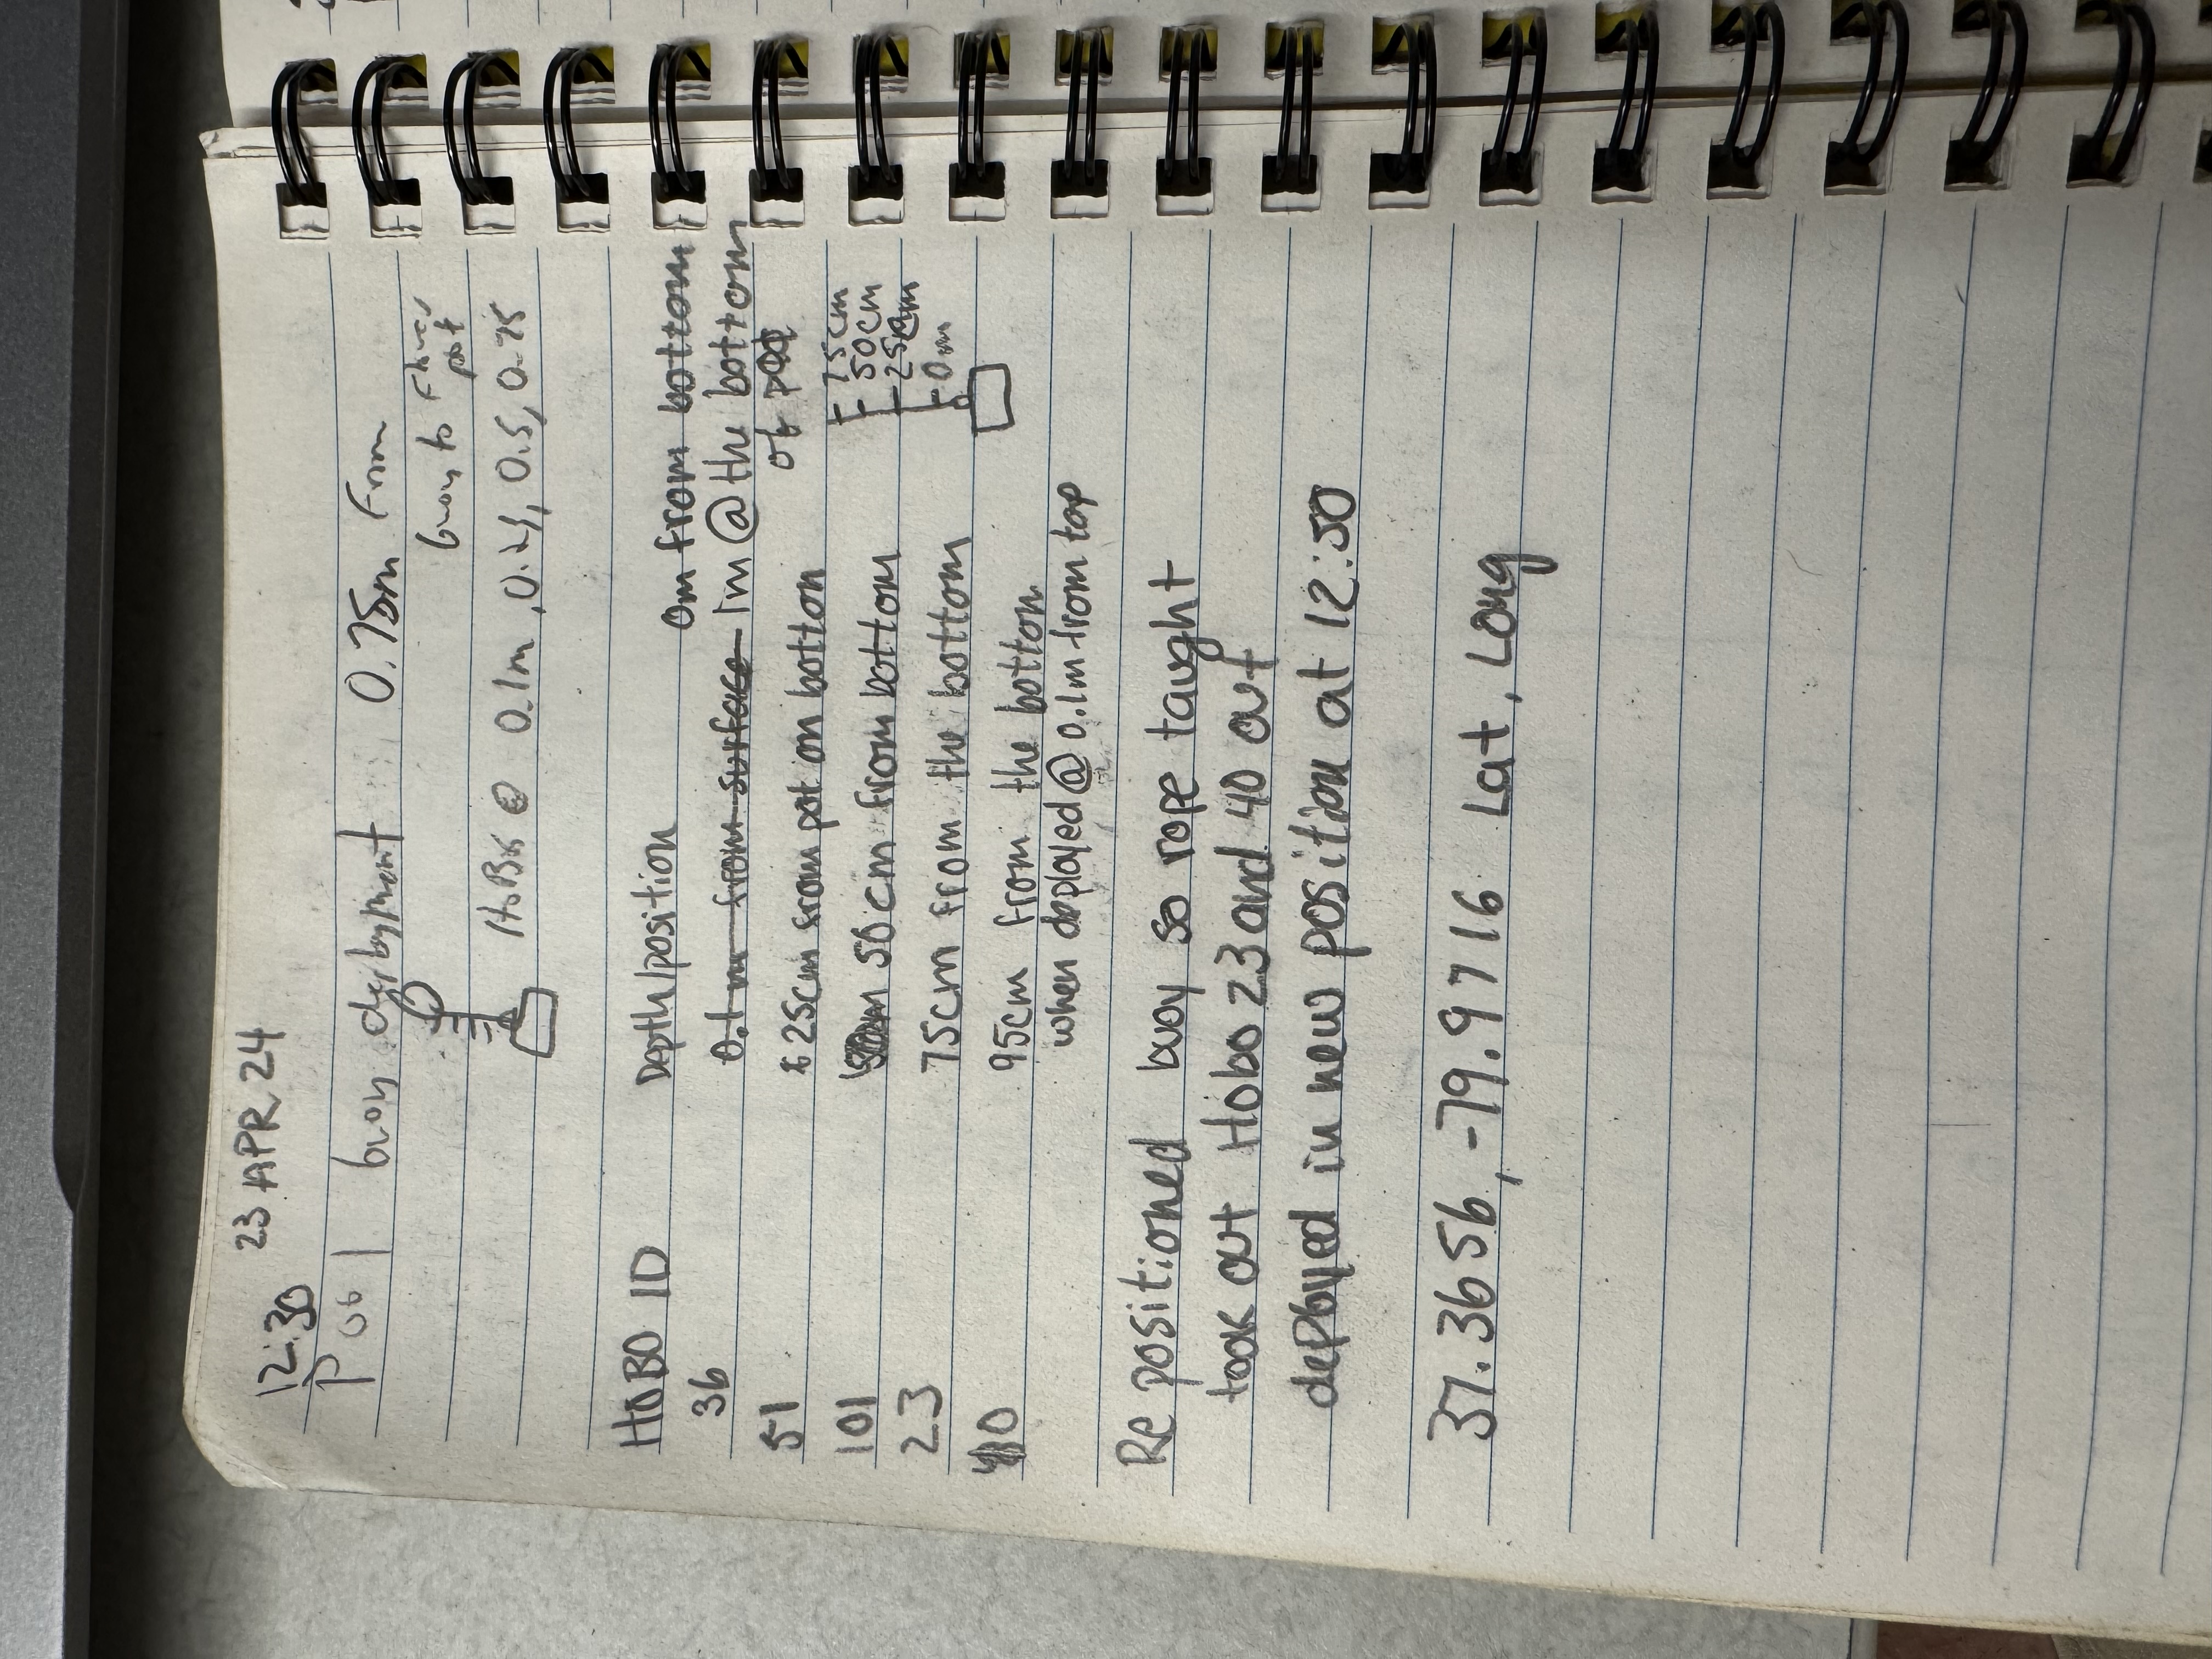 23 APR 24
12:30
P001 buoy deployment 0.75m From
buoy to flower
pot
HoBos @ 0.1m, 0.25, 0.5, 0.75
HOBO ID Depth/position 0m from bottom
36 0.1 m from surface 1m @ the bottom
of pot
51 25cm from pot on botton
101 50cm from bottom
23 75cm from the bottom
40 95cm from the bottom
when deployed @ 0.1m from top
75cm
50cm
25cm
0m
Re positioned buoy so rope taught
took out Hobo 23 and 40 out
deployed in new position at 12:50
37.3656, -79.9716 Lat, Long